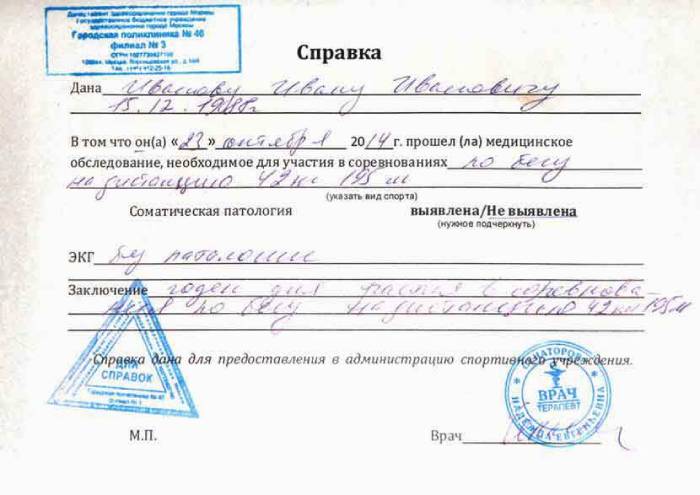 Департамент здравоохранения города Москвы
Государственное бюджетное учреждение
здравоохранения города Москвы
Городская поликлиника № 46
филиал № 3
Справка
Дана Иванову Ивану Ивановичу
15.12.1988г
В том что он(а) «23» сентября 2014 г. прошел (ла) медицинское
обследование, необходимое для участия в соревнованиях по бегу
на дистанцию 42 км 195 м
(указать вид спорта)
Соматическая патология выявлена/Не выявлена
(нужное подчеркнуть)
ЭКГ без патологии
Заключение годен для участия в соревнова-
ниях по бегу на дистанцию 42 км 195 м
Справка дана для предоставления в администрацию спортивного учреждения.
ДЛЯ
СПРАВОК
ВРАЧ
ТЕРАПЕВТ
НАДЕЖДА ЕВГЕНЬЕВНА
М.П. Врач